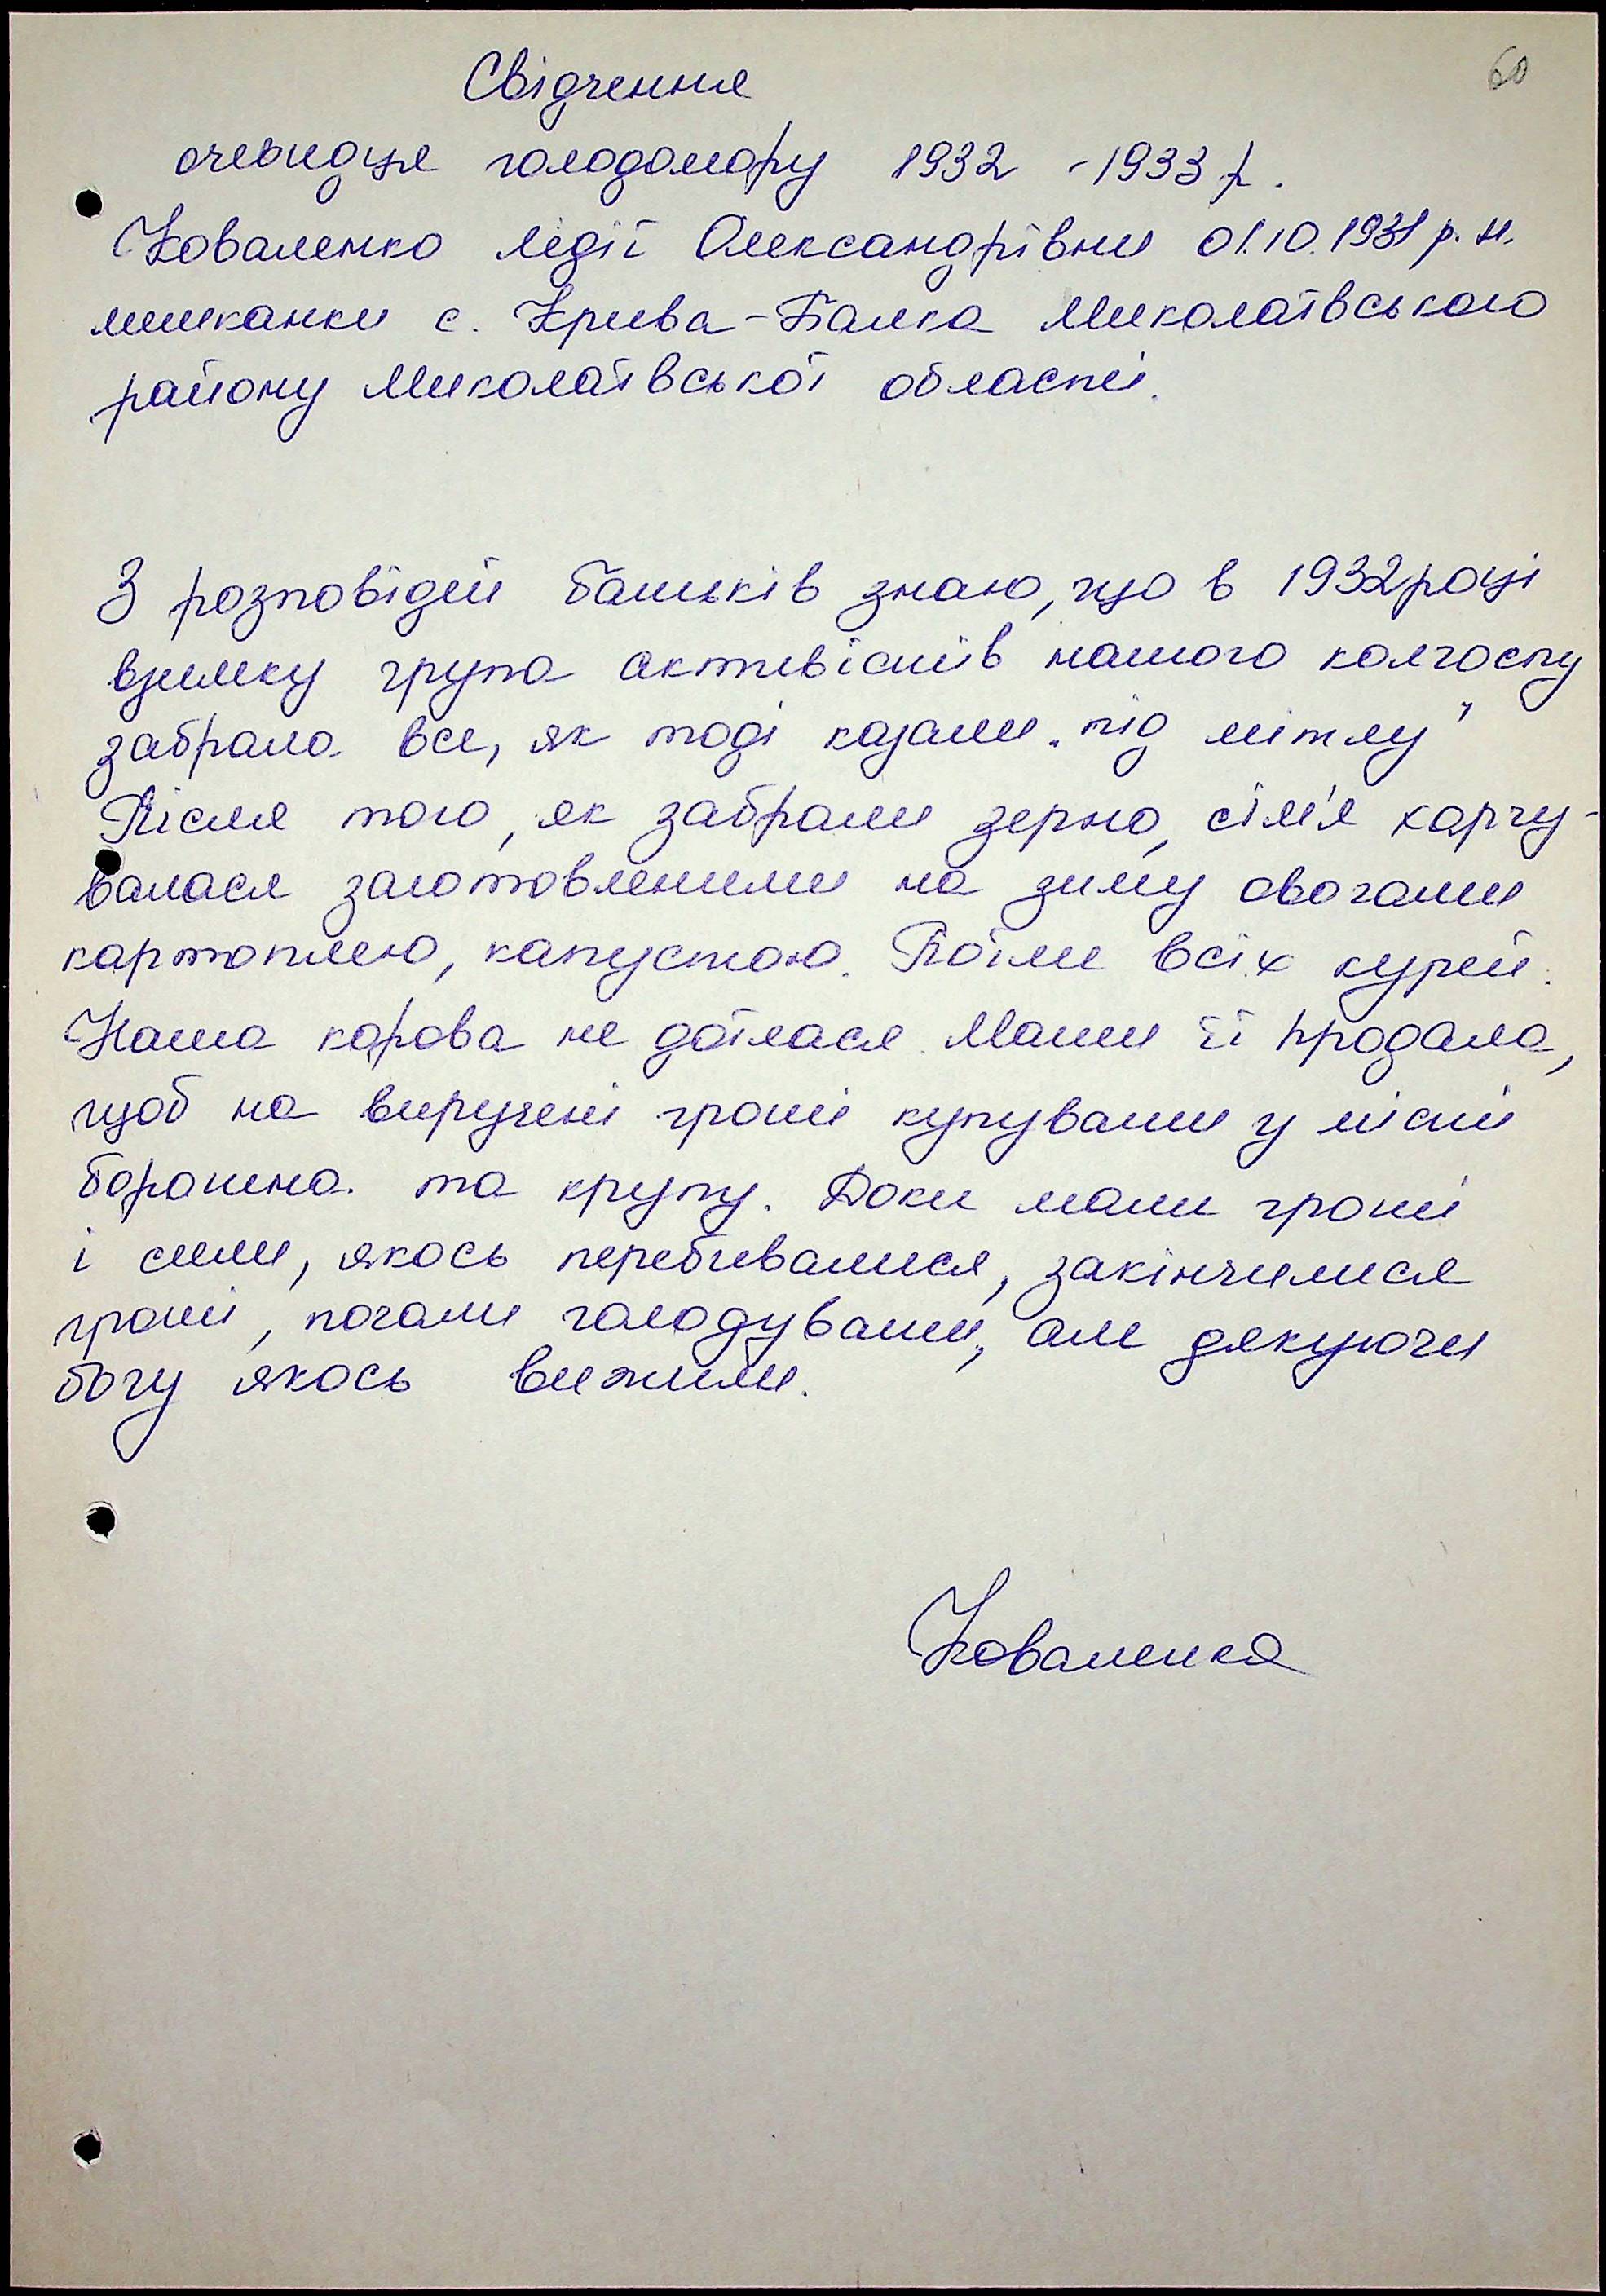 60
Свідчення
очевидця голодомору 1932 - 1933 р.
Коваленко Лідії Олександрівни 01.10.1931 р. н.
мешканки с. Крива-Балка Миколаївського
району Миколаївської області.
З розповідей батьків знаю, що в 1932 році
взимку група активістів нашого колгоспу
забрала все, як тоді казали „під мітлу"
Після того, як забрали зерно, сім'я харчу-
валася заготовленими на зиму овочами
картоплею, капустою. Поїли всіх курей.
Наша корова не доїлася. Мати її продала,
щоб на виручені гроші купувати у місті
борошно та крупу. Доки мали гроші
і сили, якось перебивалися, закінчилися
гроші, почали голодувати, але дякуючи
богу якось вижили.
Коваленко